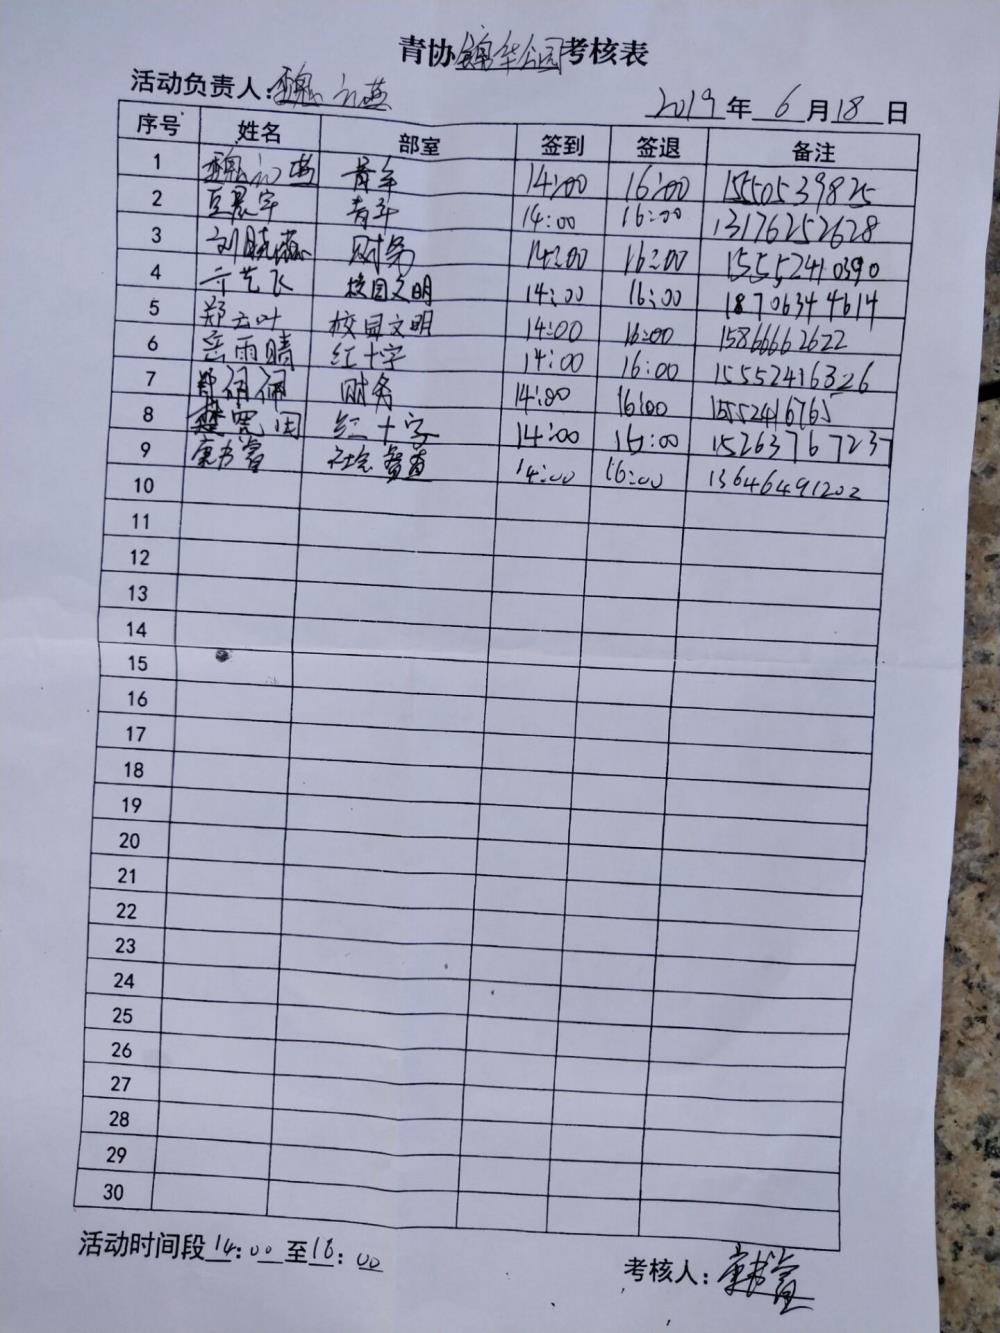 青协锦华公园考核表
活动负责人:魏
2019年6月18日
序号 姓名 部室 签到 签退 备注
1 魏 青年 14:00 16:00 15505539825
2 豆晨宇 青年 14:00 16:00 13176252628
3 刘晓 财务 14:00 16:00 15552410390
4 亓艺飞 校园文明 14:00 16:00 18706344614
5 郑云叶 校园文明 14:00 16:00 15866662622
6 岳雨晴 红十字 14:00 16:00 15552416326
7 郑俐俐 财务 14:00 16:00 1552416765
8 楚 红十字 14:00 16:00 15263767237
9 康书睿 社会 14:00 16:00 13646491202
10
11
12
13
14
15
16
17
18
19
20
21
22
23
24
25
26
27
28
29
30
活动时间段14:00至16:00
考核人:康书睿